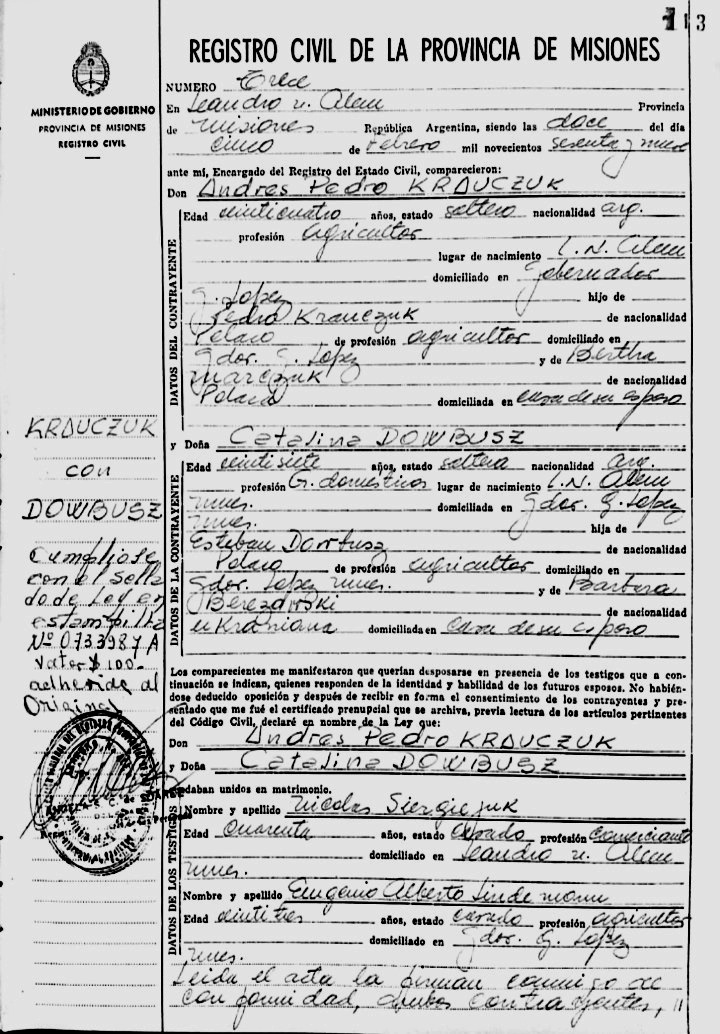 113
REGISTRO CIVIL DE LA PROVINCIA DE MISIONES
MINISTERIO DE GOBIERNO
PROVINCIA DE MISIONES
REGISTRO CIVIL
NUMERO Trece
En Leandro N. Alem Provincia
de Misiones República Argentina, siendo las doce del día
cinco de Febrero mil novecientos sesenta y nueve
ante mí, Encargado del Registro del Estado Civil, comparecieron:
Don Andres Pedro KRAUCZUK
DATOS DEL CONTRAYENTE
Edad veinticuatro años, estado soltero nacionalidad arg.
profesión agricultor
lugar de nacimiento L. N. Alem
domiciliado en Gobernador
G. Lopez hijo de
Pedro Krauczuk de nacionalidad
Polaco de profesión agricultor domiciliado en
Gdor. G. Lopez y de Bertha
Marczuk de nacionalidad
Polaca domiciliada en casa de su esposo
KRAUCZUK
con
DOWBUSZ
Cumpliose
con el Sella
do de Ley en
estampilla
Nº 0733987 A
Valor $ 100-
adherida al
Original
y Doña Catalina DOWBUSZ
DATOS DE LA CONTRAYENTE
Edad veintisiete años, estado soltera nacionalidad arg.
profesión Q. domesticos lugar de nacimiento L. N. Alem
Mnes. domiciliada en Gdor. G. Lopez
Mnes. hija de
Esteban Dowbusz de nacionalidad
Polaco de profesión agricultor domiciliado en
Gdor. Lopez Mnes. y de Barbara
Berezowski de nacionalidad
ukraniana domiciliada en casa de su esposo
Los comparecientes me manifestaron que querían desposarse en presencia de los testigos que a con-
tinuación se indican, quienes responden de la identidad y habilidad de los futuros esposos. No habién-
dose deducido oposición y después de recibir en forma el consentimiento de los contrayentes y pre-
sentado que me fué el certificado prenupcial que se archiva, previa lectura de los artículos pertinentes
del Código Civil, declaré en nombre de la Ley que:
Don Andres Pedro KRAUCZUK
y Doña Catalina DOWBUSZ
quedaban unidos en matrimonio.
DATOS DE LOS TESTIGOS
Nombre y apellido Nicolas Siergiejuk
Edad Cuarenta años, estado casado profesión comerciante
domiciliado en Leandro N. Alem
Mnes.
Nombre y apellido Eugenio Alberto Lindemann
Edad veintitres años, estado casado profesión agricultor
domiciliado en Gdor. G. Lopez
Mnes.
Leida el acta la firman conmigo de
conformidad, ambos contrayentes, //